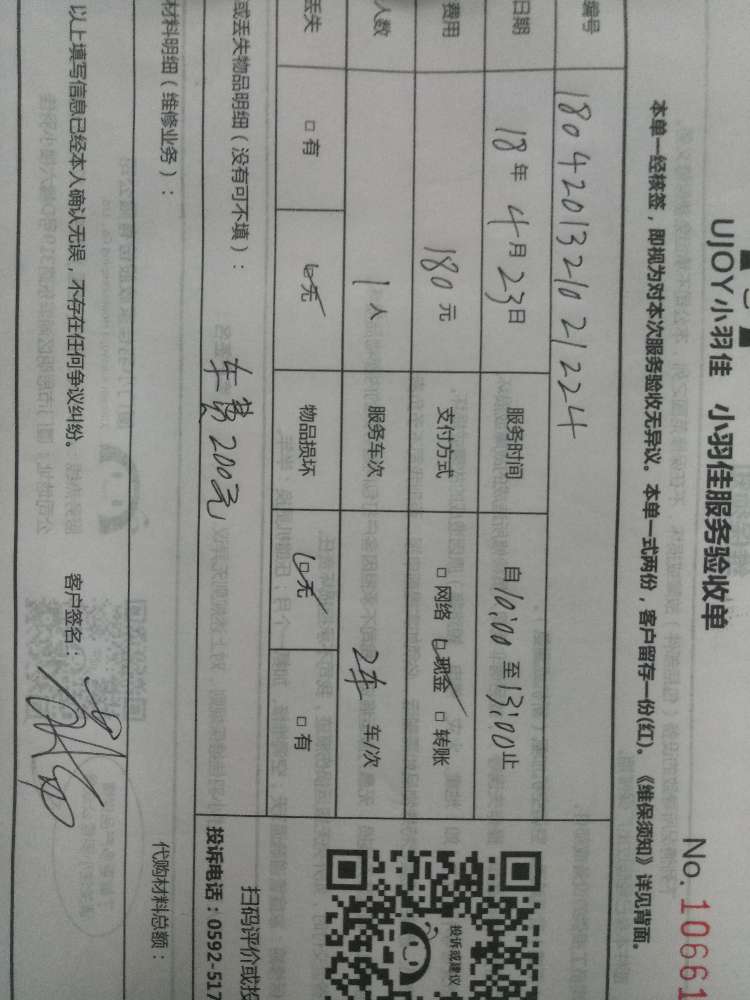 UJOY小羽佳 小羽佳服务验收单
No. 10661
本单一经核签，即视为对本次服务验收无异议。本单一式两份，客户留存一份(红)。《维保须知》详见背面。
编号 18042013210 21224
日期 18 年 4 月 23 日 服务时间 自 10:00 至 13:00 止
费用 180 元 支付方式 □ 网络 □ 现金 □ 转账
人数 1 人 服务车次 2车 车/次
丢失 □ 有 □ 无 物品损坏 □ 无 □ 有
或丢失物品明细（没有可不填）：
车费200元
材料明细（维修业务）：
代购材料总额：
以上填写信息已经本人确认无误，不存在任何争议纠纷。 客户签名：
投诉或建议
扫码评价或投
投诉电话：0592-517